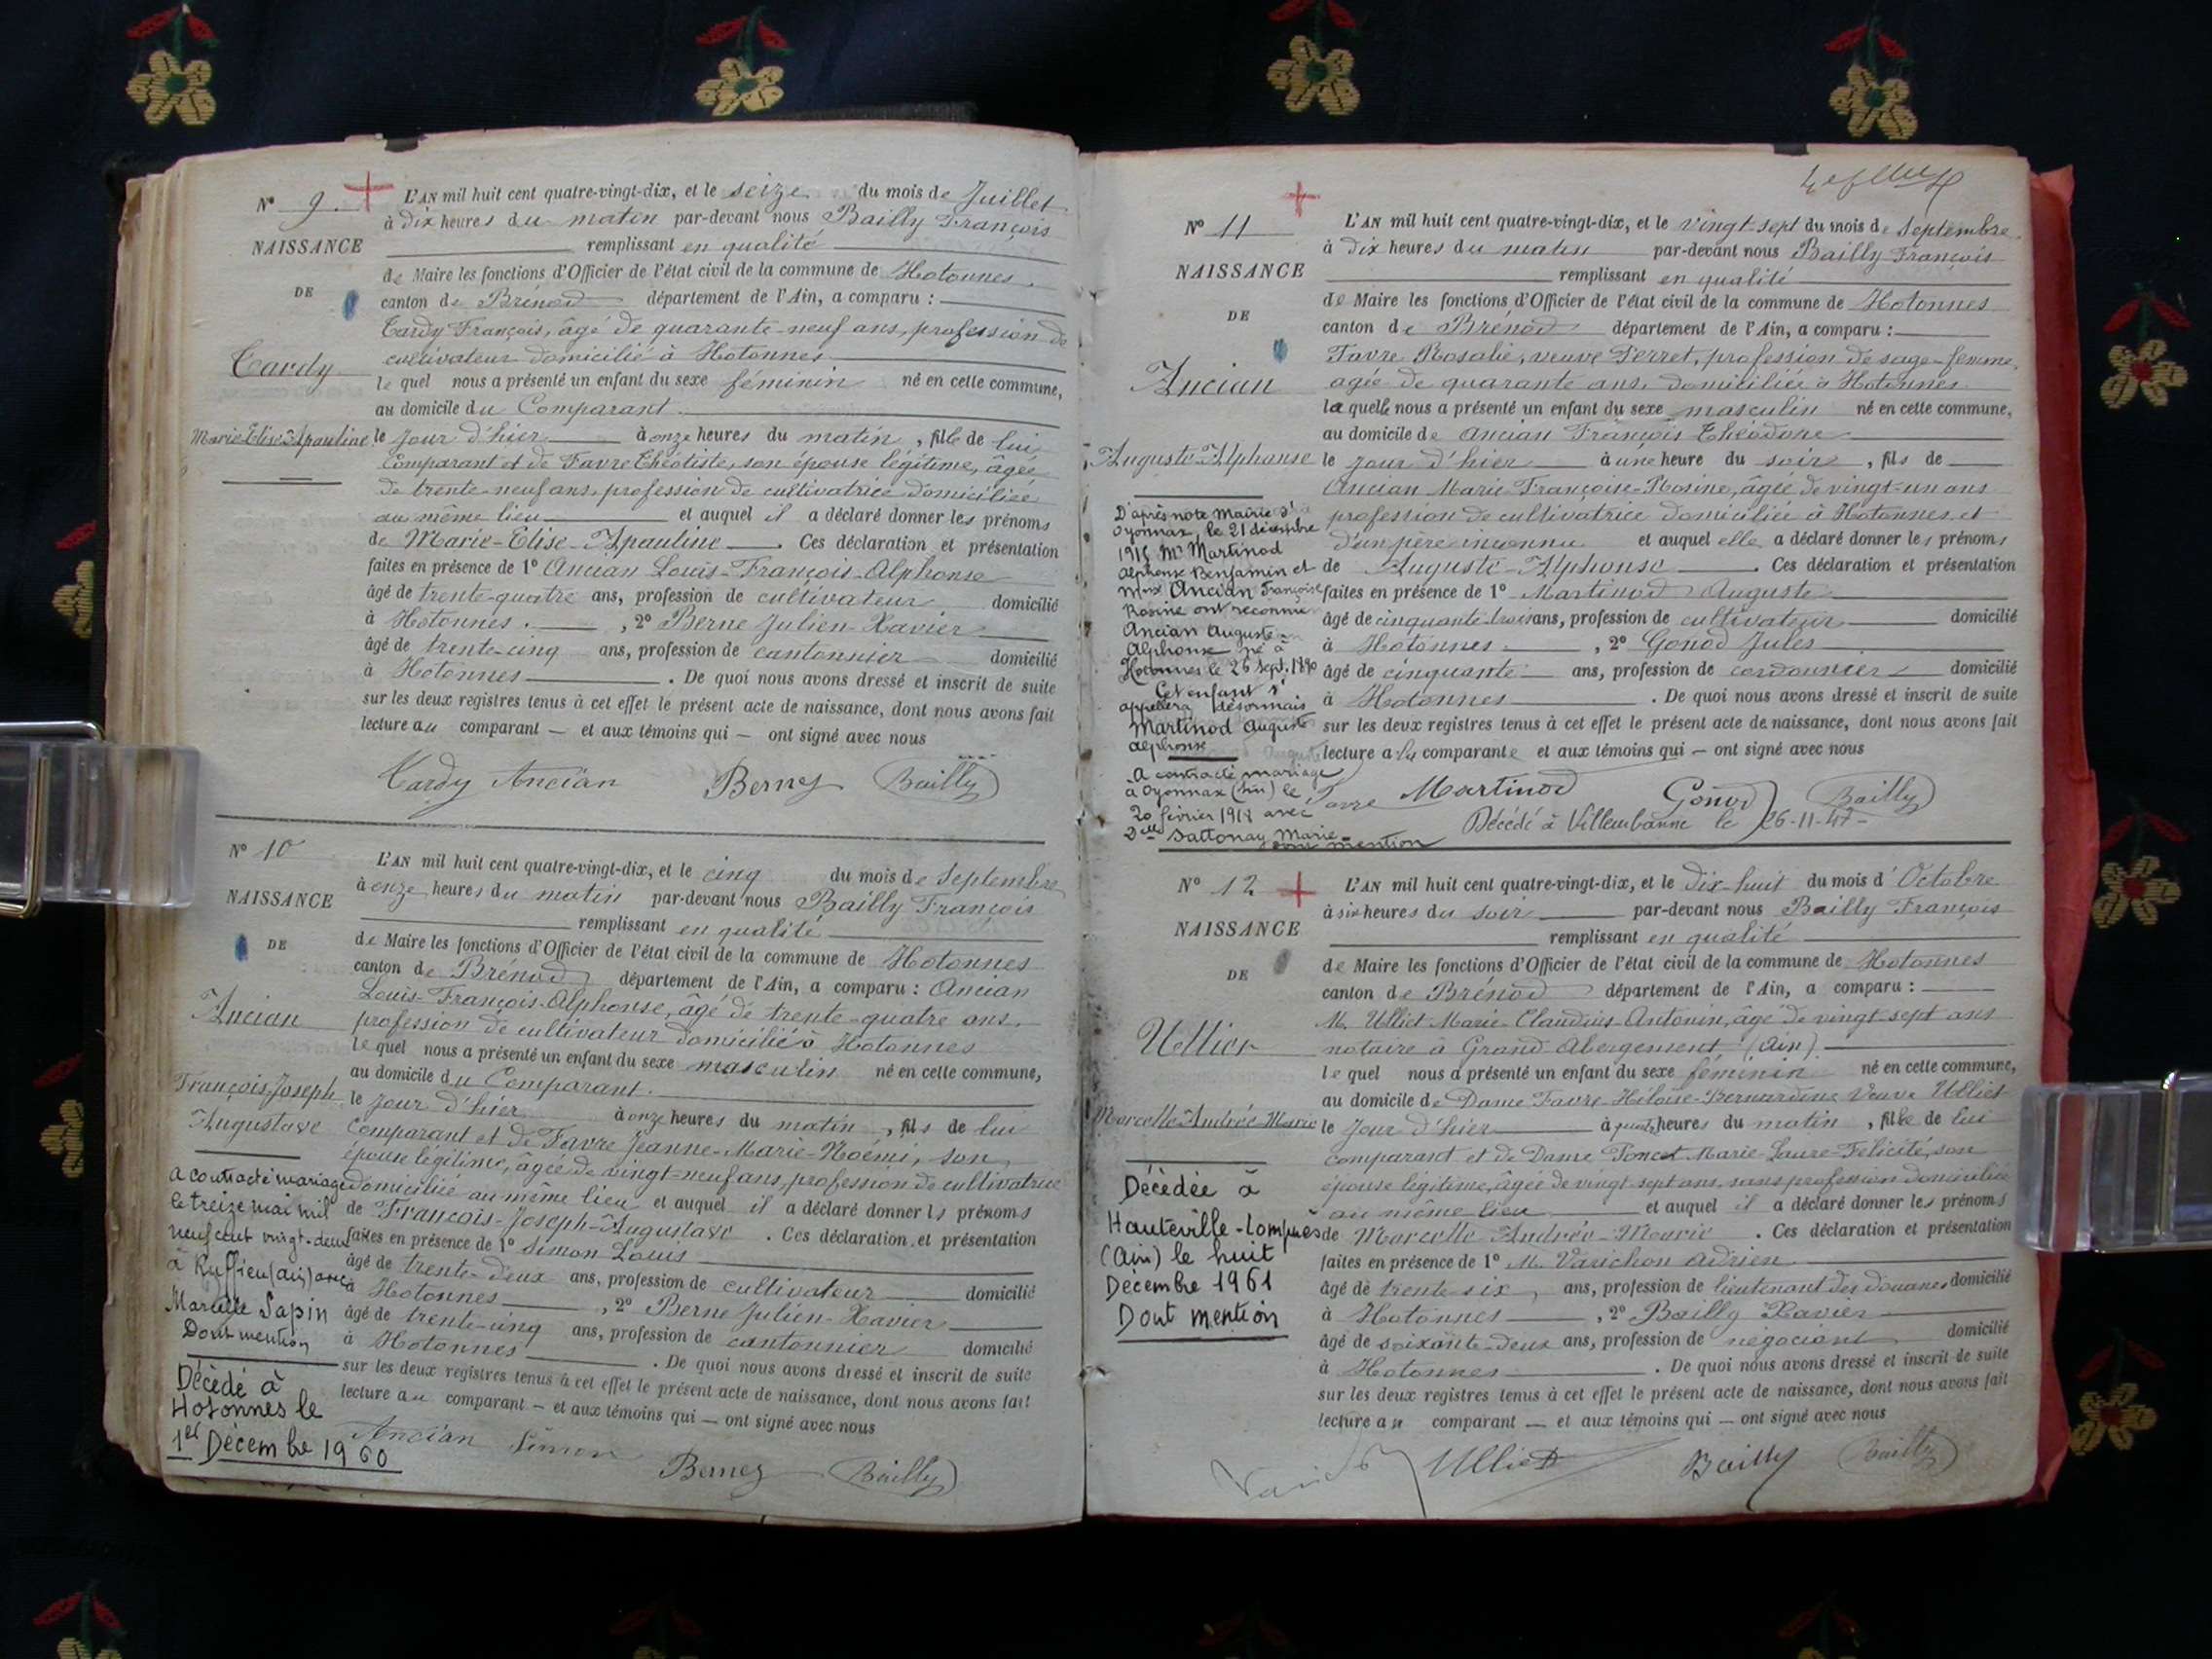 Nº 9.
NAISSANCE
DE
Tardy
Marie Elise Apauline
L'AN mil huit cent quatre-vingt-dix, et le seize du mois de Juillet
à dix heures du matin par-devant nous Bailly François
remplissant en qualité
de Maire les fonctions d'Officier de l'état civil de la commune de Hotonnes.
canton de Brénod département de l'Ain, a comparu :
Tardy François, âgé de quarante-neuf ans, profession de
cultivateur domicilié à Hotonnes
lequel nous a présenté un enfant du sexe féminin né en cette commune,
au domicile du Comparant.
le jour d'hier à onze heures du matin, fille de lui
Comparant et de Favre Théotiste, son épouse légitime, âgée
de trente-neuf ans, profession de cultivatrice domiciliée
au même lieu et auquel il a déclaré donner les prénoms
de Marie-Elise-Apauline. Ces déclaration et présentation
faites en présence de 1º Ancian Louis-François-Alphonse
âgé de trente-quatre ans, profession de cultivateur domicilié
à Hotonnes. , 2º Berne Julien-Xavier
âgé de trente-cinq ans, profession de cantonnier domicilié
à Hotonnes. De quoi nous avons dressé et inscrit de suite
sur les deux registres tenus à cet effet le présent acte de naissance, dont nous avons fait
lecture au comparant — et aux témoins qui — ont signé avec nous
Tardy Ancian Bernez Bailly
Nº 10
NAISSANCE
DE
Ancian
François Joseph
Augustave
A contracté mariage
le treize mai mil
neuf cent vingt-deux
à Ruffieu (Ain) avec
Marcelle Sapin
Dont mention
Décédé à
Hotonnes le
1er Décembre 1960
L'AN mil huit cent quatre-vingt-dix, et le cinq du mois de Septembre
à onze heures du matin par-devant nous Bailly François
remplissant en qualité
de Maire les fonctions d'Officier de l'état civil de la commune de Hotonnes
canton de Brénod département de l'Ain, a comparu : Ancian
Louis-François-Alphonse, âgé de trente-quatre ans,
profession de cultivateur domicilié à Hotonnes
lequel nous a présenté un enfant du sexe masculin né en cette commune,
au domicile du Comparant.
le jour d'hier à onze heures du matin, fils de lui
Comparant et de Favre Jeanne-Marie-Noémi, son
épouse légitime, âgée de vingt-neuf ans, profession de cultivatrice
domiciliée au même lieu et auquel il a déclaré donner les prénoms
de François-Joseph-Augustave. Ces déclaration et présentation
faites en présence de 1º Simon Louis
âgé de trente-deux ans, profession de cultivateur domicilié
à Hotonnes, 2º Berne Julien-Xavier
âgé de trente-cinq ans, profession de cantonnier domicilié
à Hotonnes. De quoi nous avons dressé et inscrit de suite
sur les deux registres tenus à cet effet le présent acte de naissance, dont nous avons fait
lecture au comparant — et aux témoins qui — ont signé avec nous
Ancian Simon Bernez Bailly
Nº 11
NAISSANCE
DE
Ancian
Auguste Alphonse
D'après note Mairie d'
Oyonnax, le 21 décembre
Mr Martinod
Alphonse Benjamin et
Mme Ancian Françoise
Rosine ont reconnu
Ancian Auguste
Alphonse né à
Hotonnes le 26 sept. 1890
Cet enfant s'
appellera désormais
Martinod Auguste
Alphonse
A contracté mariage
à Oyonnax (Ain) le
20 février 1918 avec
Delle Dattonay Marie
Dont mention
L'AN mil huit cent quatre-vingt-dix, et le vingt-sept du mois de Septembre
à dix heures du matin par-devant nous Bailly François
remplissant en qualité
de Maire les fonctions d'Officier de l'état civil de la commune de Hotonnes
canton de Brénod département de l'Ain, a comparu :
Favre Rosalie, veuve Perret, profession de sage-femme,
âgée de quarante ans, domiciliée à Hotonnes
laquelle nous a présenté un enfant du sexe masculin né en cette commune,
au domicile de Ancian François Théodore
le jour d'hier à une heure du soir, fils de
Ancian Marie Françoise-Rosine, âgée de vingt-un ans
profession de cultivatrice domiciliée à Hotonnes et
d'un père inconnu et auquel elle a déclaré donner les prénoms
de Auguste-Alphonse. Ces déclaration et présentation
faites en présence de 1º Martinod Auguste
âgé de cinquante-trois ans, profession de cultivateur domicilié
à Hotonnes, 2º Gonod Jules
âgé de cinquante ans, profession de cordonnier domicilié
à Hotonnes. De quoi nous avons dressé et inscrit de suite
sur les deux registres tenus à cet effet le présent acte de naissance, dont nous avons fait
lecture a la comparante et aux témoins qui — ont signé avec nous
Favre Martinod Gonod Bailly
Décédé à Villeurbanne le 26-11-47-
Nº 12
NAISSANCE
DE
Ulliet
Marcelle Andrée Marie
Décédée à
Hauteville-Lompnes
(Ain) le huit
Décembre 1961
Dont mention
L'AN mil huit cent quatre-vingt-dix, et le dix-huit du mois d'Octobre
à six heures du soir par-devant nous Bailly François
remplissant en qualité
de Maire les fonctions d'Officier de l'état civil de la commune de Hotonnes
canton de Brénod département de l'Ain, a comparu :
M. Ulliet Marie-Claudius-Antonin, âgé de vingt-sept ans
notaire à Grand Abergement (Ain)
lequel nous a présenté un enfant du sexe féminin né en cette commune,
au domicile de Dame Favre-Héloïse-Bernardine Veuve Ulliet
le jour d'hier à quatre heures du matin, fille de lui
comparant et de Dame Poncet Marie-Laure-Félicité, son
épouse légitime, âgée de vingt-sept ans, sans profession domiciliée
au même lieu et auquel il a déclaré donner les prénoms
de Marcelle-Andrée-Marie. Ces déclaration et présentation
faites en présence de 1º M. Varichon Adrien
âgé de trente six ans, profession de lieutenant des douanes domicilié
à Hotonnes, 2º Bailly Xavier
âgé de soixante-deux ans, profession de négociant domicilié
à Hotonnes. De quoi nous avons dressé et inscrit de suite
sur les deux registres tenus à cet effet le présent acte de naissance, dont nous avons fait
lecture au comparant — et aux témoins qui — ont signé avec nous
Ulliet Bailly Bailly